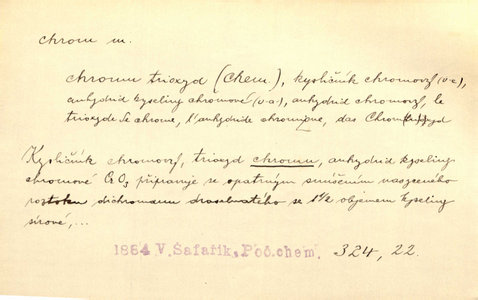 chrom m.
chromu trioxyd (Chem.), kysličník chromový (v.e),
anhydrid kyseliny chromové (v.a.), anhydrid chromový, le
trioxyde de chrome, l'anhydride chromique, das
Kysličník chromový, trioxyd chromu, anhydrid kyseliny
chromové CrO3 připravuje se opatrným smíšením nasyceného
roztoku dichromanu draselnatého se 1½ objemem kyseliny
sírové,...
1884 V. Šafařík, Poč.chem. 324, 22.